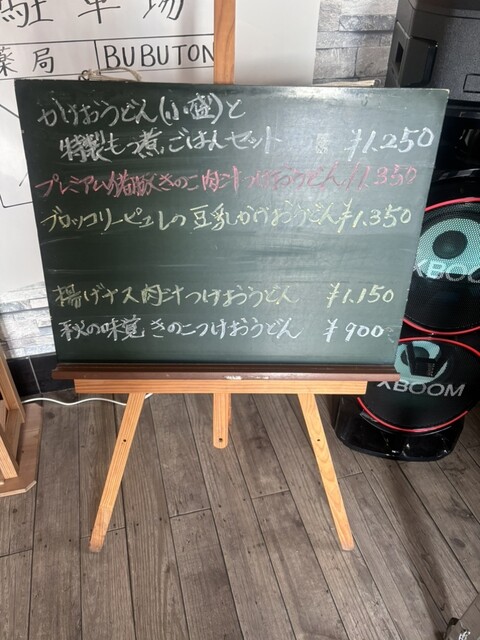 駐車場
薬局 BUBUTON
かけおうどん(小盛)と
特製もつ煮ごはんセット ¥1.250
プレミアム きのこ肉汁つけおうどん ¥1.350
ブロッコリーピュレの豆乳かけおうどん ¥1.350
揚げナス肉汁つけおうどん ¥1.150
秋の味覚 きのこつけおうどん ¥900
XBOOM
XBOOM